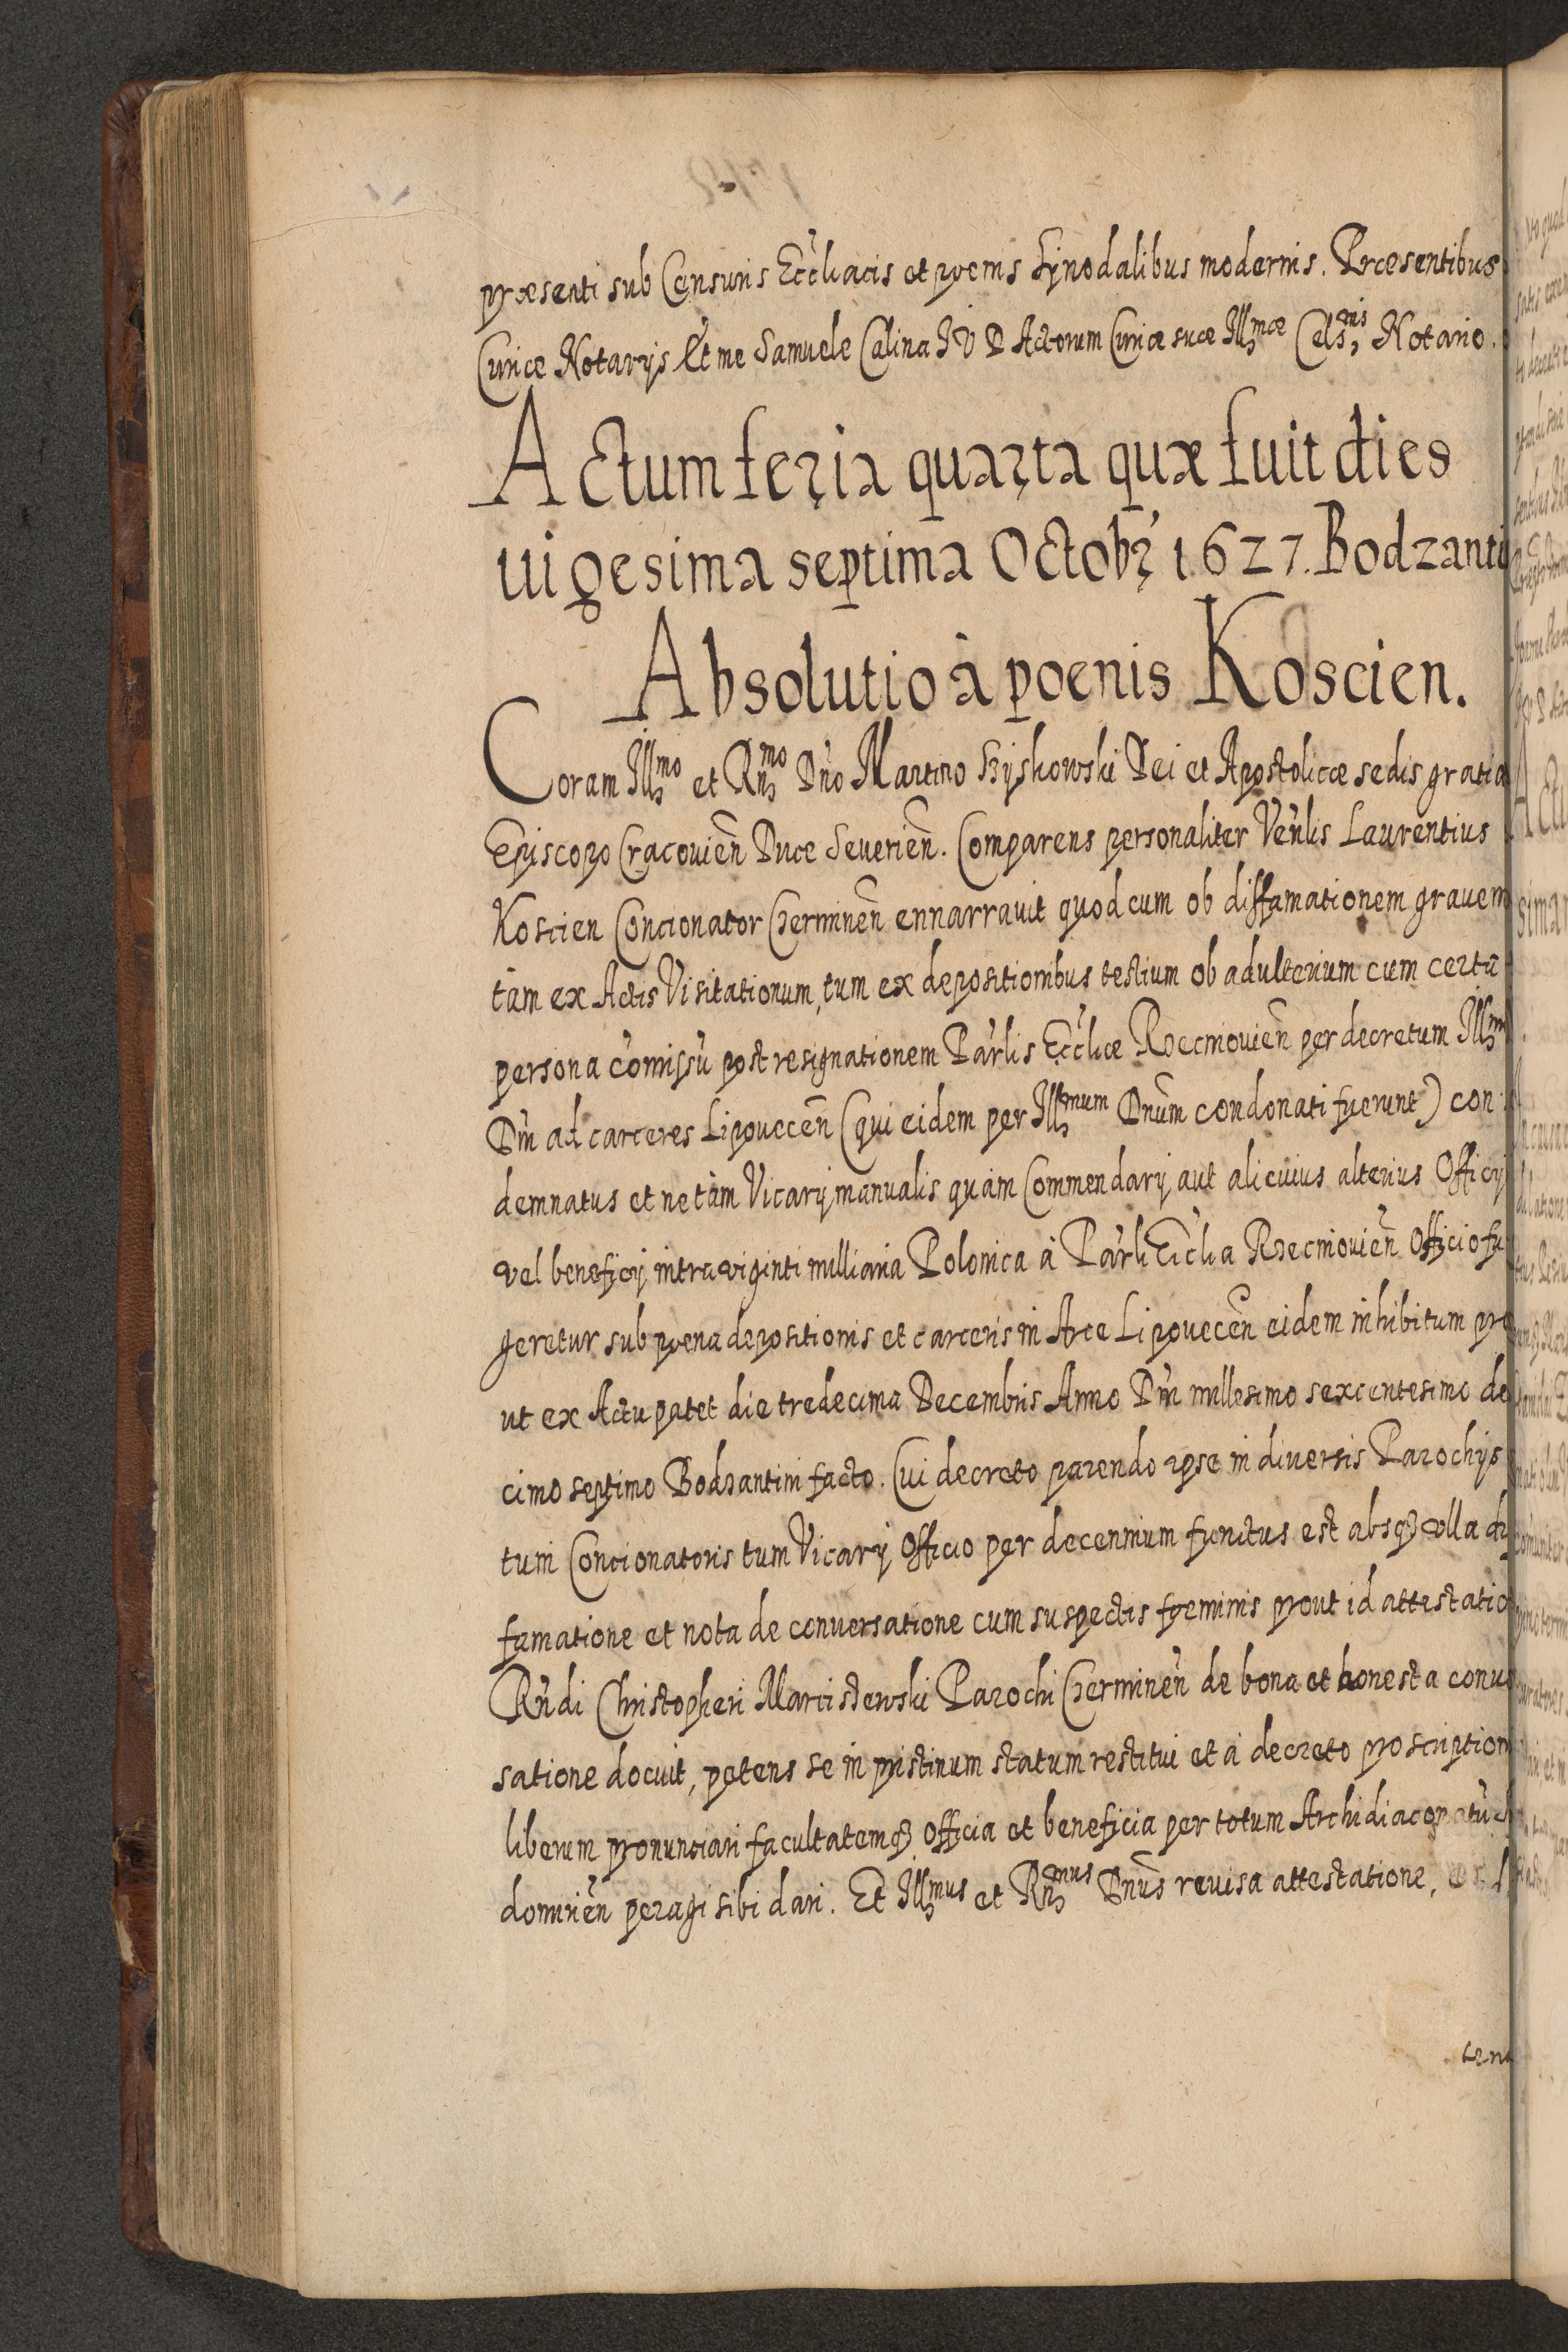 præsenti sub Censuris Ecc̃liacis et poenis Synodalibus modernis. Præsentibus
Curiæ Notarijs Et me Samuele Calina J V D Actorum Curiæ suæ Illmæ Celsnis Notario.
Actum feria quarta quæ fuit dies
uigesima septima Octobr 1627. Bodzanti
Absolutio à poenis Koscien.
Coram Illmo et Rnmo Dño Martino Szyskowski Dei et Apostolicæ sedis gratia
Episcopo Cracouien̄ Duce Seuerien̄. Comparens personaliter Veñlis Laurentius
Koscien Concionator Cherminen̄ ennarrauit quod cum ob diffamationem grauem
tàm ex Actis Visitationum, tum ex depositionibus testium ob adulterium cum certa
persona com̄issū post resignationem Pār̄lis Ecc̃liæ Rzecmouien̄ per decretum Illm
Dn̄i ad carceres Lipouecen̄ (qui eidem per Illmum Dnūm condonati fuerunt) con
demnatus et ne tàm Vicarij manualis quàm Commendarij aut alicuius alterius Officij
vel beneficij intra viginti milliaria Polonica à Pār̄li Ecc̃lia Rzecmouien̄ Officio fu
geretur sub poena depositionis et carceris in Arce Lipouecen̄ eidem inhibitum pro
ut ex Actu patet die tredecima Decembris Anno Dn̄i millesimo sexcentesimo de
cimo septimo Bodzantini facto. Cui decreto parendo ipse in diuersis Parochijs
tum Concionatoris tum Vicarij Officio per decennium functus est absq3 vlla di
famatione et nota de conuersatione cum suspectis foeminis prout id attestatio
Rn̄di Christopheri Marcistewski Parochi Cherminen̄ de bona et honesta conue
satione docuit, petens se in pristinum statum restitui et à decreto proscription
liberum pronuntiari facultatemq3 Officia et beneficia per totum Archidiaconatū
domirien̄ peragi sibi dari. Et Illmus et Rnmus Dnūs reuisa attestatione,